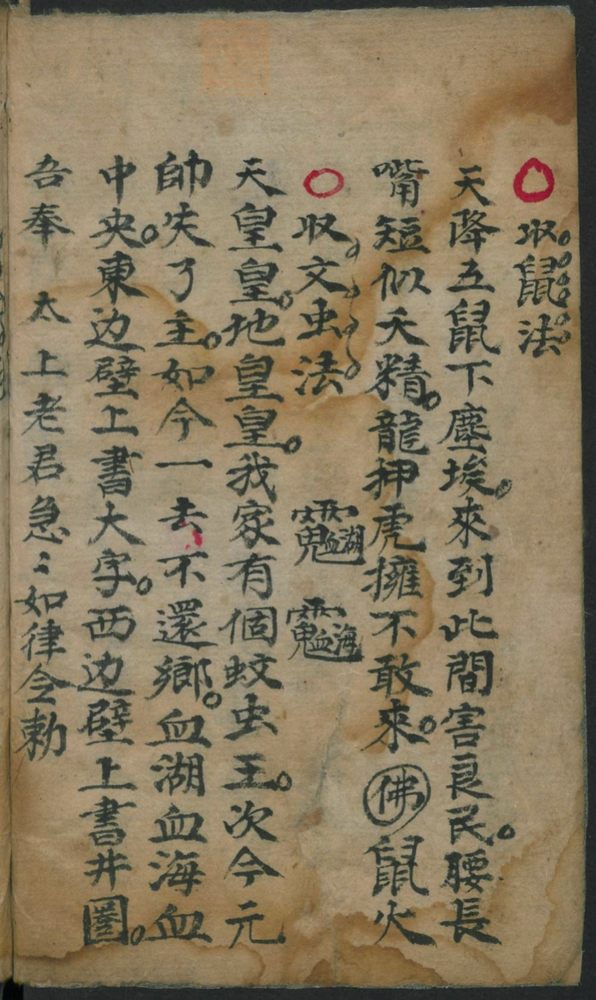 收鼠法
天降五鼠下塵埃。來到此間害良民。腰長
嘴短似天精。龍押虎擁不敢來。佛鼠火
收文虫法
天皇皇。地皇皇。我家有個蚊虫王。次今元
帥失了主。如今一去不還鄉。血湖血海血
中央。東边壁上書大字。西边壁上書井圈。
吞奉 太上老君急〻如律令勅